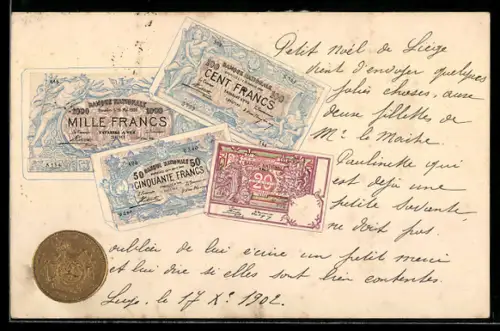 BANQUE NATIONALE
100 CENT FRANCS 100
BANQUE NATIONALE
1000 1000
MILLE FRANCS
PAYABLES A VUE
50 BANQUE NATIONALE 50
CINQUANTE FRANCS
20
Petit noël de Liège
vient d'envoyer quelques
jolies choses, aux
deux fillettes de
Mr le Maître
Paulinette qui
est déjà une
petite savante,
ne doit pas
oublier de lui écrire un petit merci
et lui dire si elles sont bien contentes.
le 17 Xe 1902.